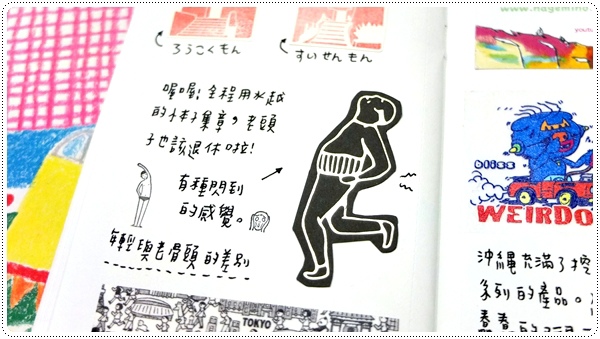 ろうこくもん
すいせんもん
喔喔! 全程用水越
的本子集章，老頭
子也該退休啦!
有種閃到
的感覺。
年輕與老骨頭的差別
TOKYO
www.hagemino
youtu
bliss
WEIRDO
沖繩充滿了
系列的產品。